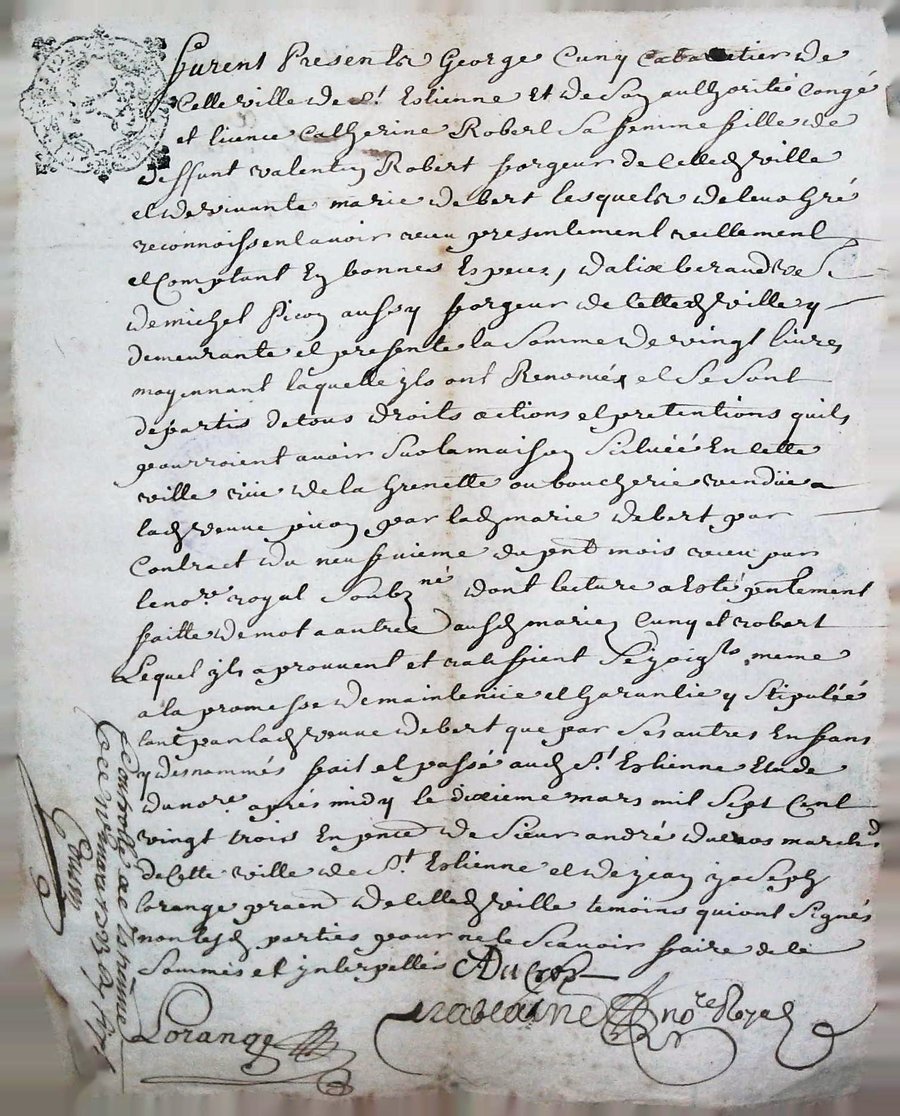 furent Presents George Cuny Cabaretier de
Cette ville de St. Estienne Et de Son authorité Congé
et licence Catherine Robert Sa femme fille de
deffunt valentin Robert forgeur de cetted. ville
et de vivante marie debert lesquels de leur Gré
reconnaissent avoir receu presentement reellement
et Comptant En bonnes Especes, d'alix beraud ve
de michel Picon aussy forgeur de cetted. ville y
demeurante et presente la Somme de vingt livres
moyennant laquelle yls ont Renoncés et Se Sont
departis de tous droits actions et pretentions quils
pourroient avoir Sur la maison Scituéé En cette
ville rue de la Grenette ou boucherie vendüe a
lad. veuve picon par lad. marie debert par
Contract du neufvieme du pnt mois receu par
le nore. royal Soubzné dont lecture a Esté pntement
faitte de mot a autre ausd. mariez Cuny et robert
Lequel yls aprouvent et ratiffient meme
a la promesse de maintenüe et Garantie y Stipuléé
tant par lad. veuve debert que par Ses autres Enfans
y desnommés fait et passé aud. St. Estienne Etude
du nore. après midy le dixieme mars mil Sept Cent
vingt trois En pnce de Sieur andré ducros marchd.
de Cette ville de St. Estienne et de jean joseph
lorange pratn. de cetted. ville temoins qui ont Signés
non lesd. parties pour ne le Scavoir faire de ce
Sommés et ynterpellés ADucros
nore Royal
Lorange
Controllé a St estienne